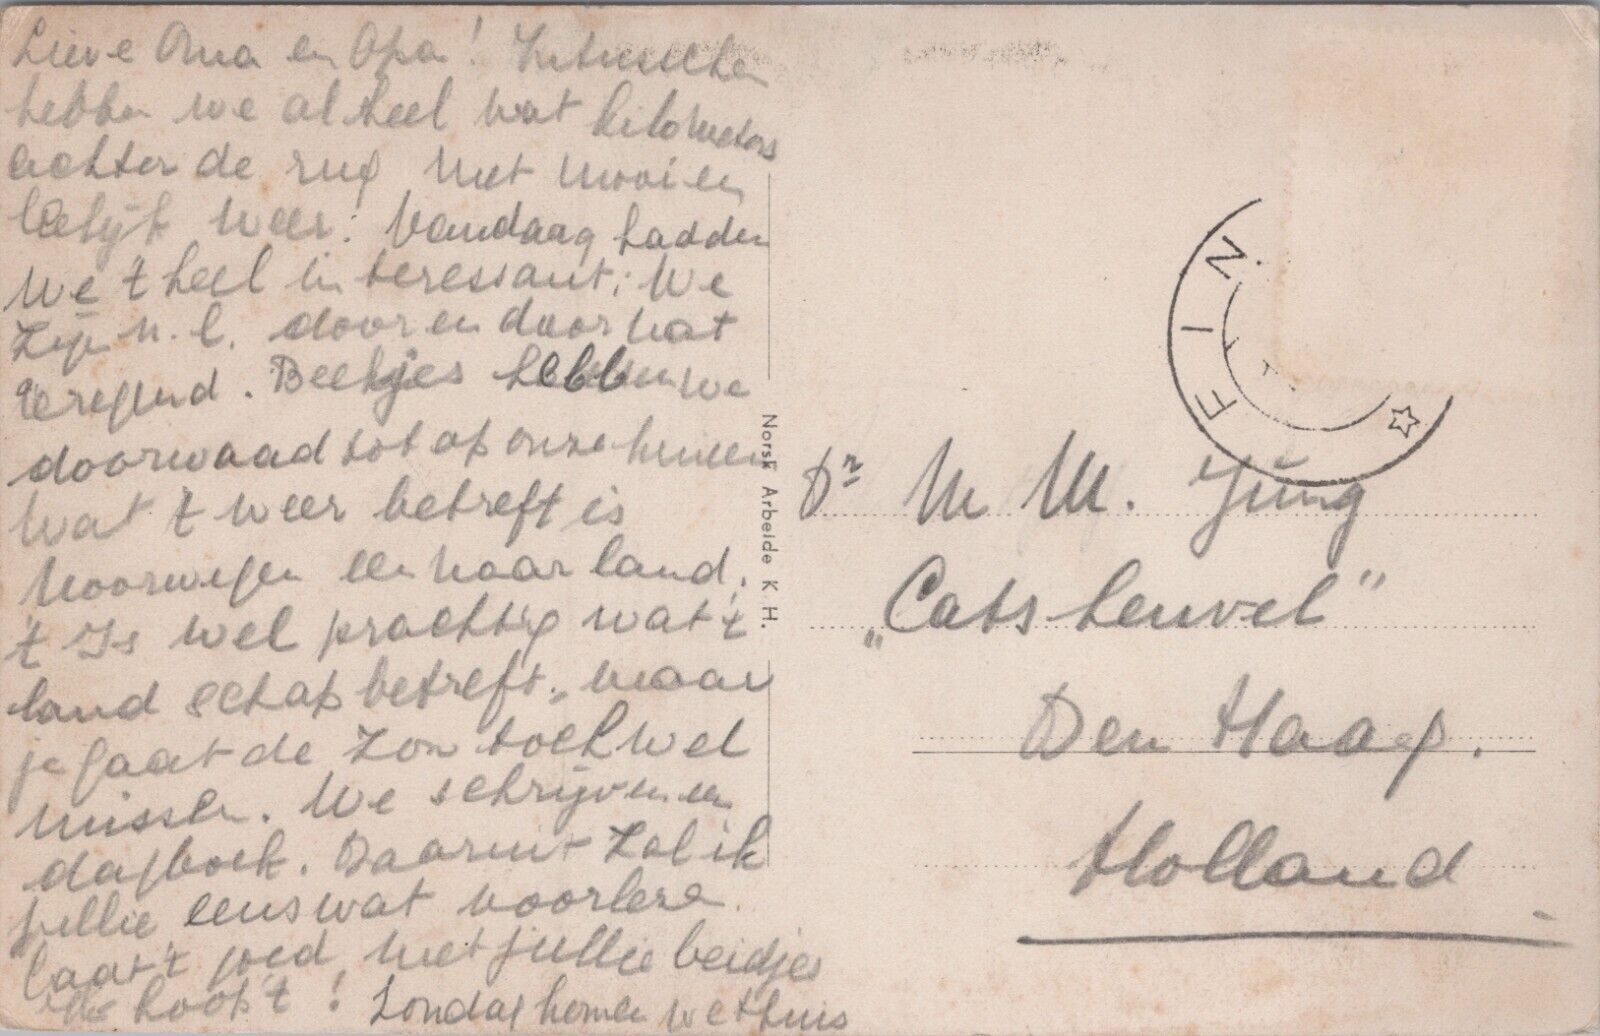 Lieve Oma en Opa! Intusschen
hebben we al heel wat kilometers
achter de rug met mooi en
lelijk weer! Vandaag hadden
we 't heel interessant: We
zijn n.l. door en door nat
geregend. Beekjes hebben we
doorwaad tot op onze knieen
wat 't weer betreft is
Noorwegen een naar land.
't Is wel prachtig wat 't
landschap betreft, maar
je gaat de zon toch wel
missen. We schrijven een
dagboek. Daaruit zal ik
jullie eens wat voorlezen.
Gaat 't goed met jullie beidjes
We hoop 't! Zondag komen we thuis
Norsk Arbeide K H.
FIN
Dr M M. Jüng
„Catsheuvel”
Den Haag.
Holland